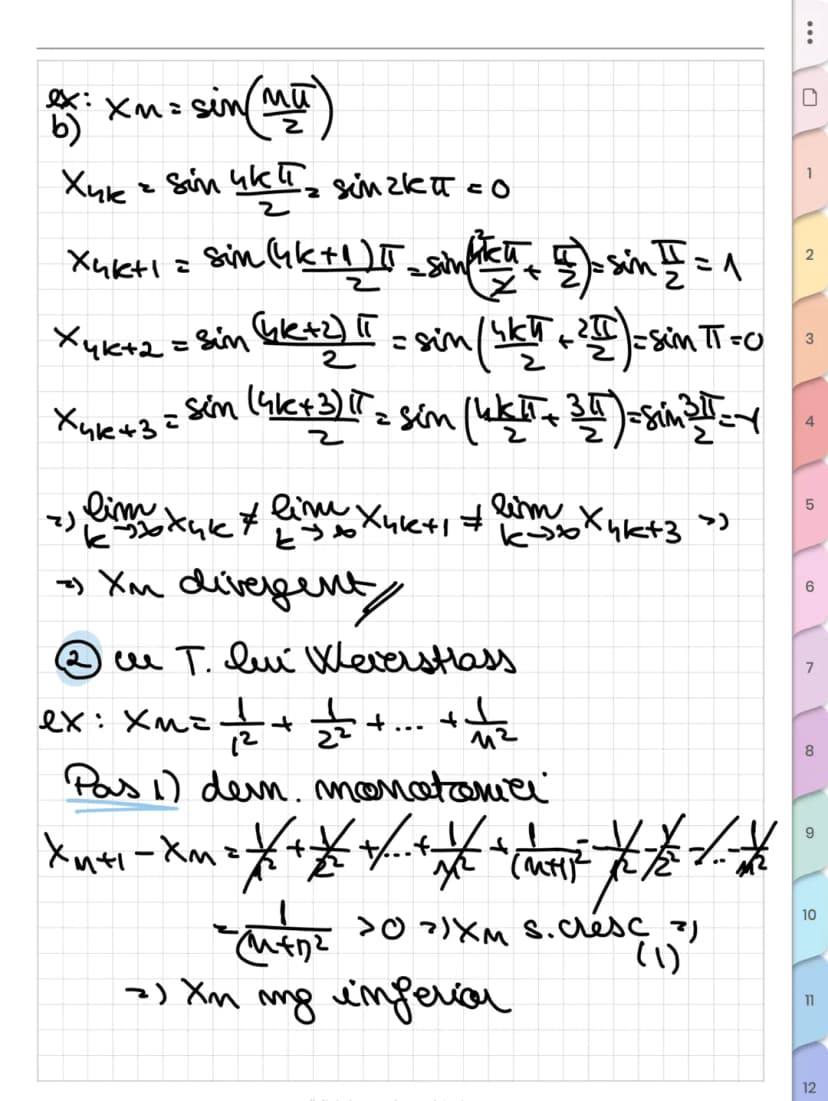 ex: xn = sin(nπ/2)
b)
x4k = sin 4kπ/2 = sin 2kπ = 0
x4k+1 = sin (4k+1)π/2 = sin(4kπ/2 + π/2) = sin π/2 = 1
x4k+2 = sin (4k+2)π/2 = sin(4kπ/2 + 2π/2) = sin π = 0
x4k+3 = sin (4k+3)π/2 = sin(4kπ/2 + 3π/2) = sin 3π/2 = -1
=) lim k→∞ x4k ≠ lim k→∞ x4k+1 ≠ lim k→∞ x4k+3 =)
=) xn divergent //
② cu T. lui Weierstrass
ex: xn = 1/1² + 1/2² + ... + 1/n²
Pas 1) dem. monotoniei
xn+1 - xn = 1/1² + 1/2² + ... + 1/n² + 1/(n+1)² - 1/1² - 1/2² - ... - 1/n²
= 1/(n+1)² > 0 =) xn s. cresc (1) =)
=) xn mg inferior
1
2
3
4
5
6
7
8
9
10
11
12